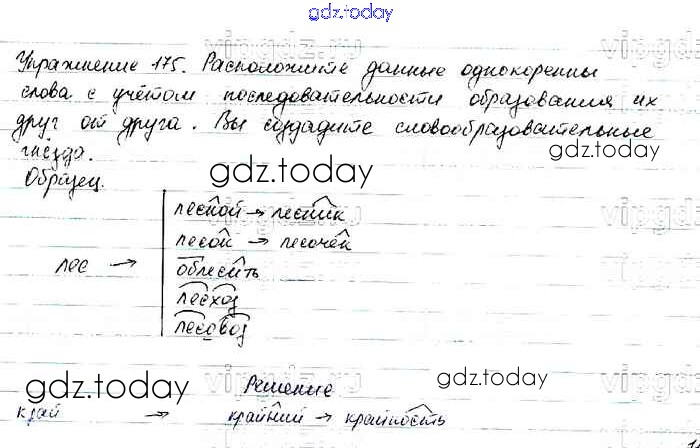 gdz.today
Упражнение 175. Расположите данные однокоренны
слова с учётом последовательности образования их
друг от друга. Вы создадите словообразовательные
гнёзда.
gdz.today
gdz.today
Образец.
лесной → лесник
лесок → лесочек
лес → облесить
лесход
лесовоз
gdz.today
Решение
gdz.today
край → крайний → крайность